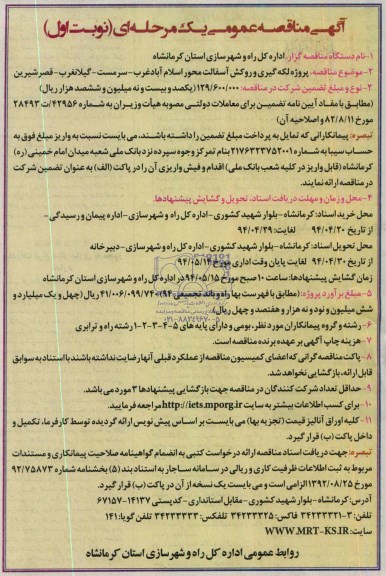 آگهی مناقصه عمومی یک مرحله‌ای (نوبت اول)
۱-نام دستگاه مناقصه گزار: اداره کل راه و شهرسازی استان کرمانشاه
۲-موضوع مناقصه: پروژه لکه گیری و روکش آسفالت محور اسلام آبادغرب-سرمست-گیلانغرب-قصرشیرین
۳- نوع و مبلغ تضمین شرکت در مناقصه: ۱۲۹/۶۰۰/۰۰۰ (یکصد و بیست و نه میلیون و ششصد هزار ریال)
(مطابق با مفاد آیین نامه تضمین برای معاملات دولتی مصوبه هیأت وزیران به شماره ۴۲۹۵۶/ت ۲۸۴۹۳ ه
مورخ ۸۲/۸/۱۱ و اصلاحیه آن)
تبصره: پیمانکارانی که تمایل به پرداخت مبلغ تضمین را داشته باشند، می بایست نسبت به واریز مبلغ فوق به
حساب سیبا به شماره ۲۱۷۶۴۲۳۷۵۲۰۰۱ بنام تمرکز وجوه سپرده نزد بانک ملی شعبه میدان امام خمینی (ره)
کرمانشاه (قابل واریز در کلیه شعب بانک ملی) اقدام و فیش واریزی آن را در پاکت (الف) به عنوان تضمین شرکت
در مناقصه ارائه نمایند.
۴-محل و زمان و مهلت دریافت اسناد، تحویل و گشایش پیشنهادها:
محل خرید اسناد: کرمانشاه-بلوار شهید کشوری-اداره کل راه و شهرسازی-اداره پیمان و رسیدگی-
از تاریخ ۹۴/۰۴/۲۰ لغایت: ۹۴/۰۴/۲۹
محل تحویل اسناد: کرمانشاه-بلوار شهید کشوری-اداره کل راه و شهرسازی-دبیرخانه
از تاریخ ۹۴/۰۴/۳۰ لغایت پایان وقت اداری مورخ ۹۴/۰۵/۱۴
زمان گشایش پیشنهادها: ساعت ۱۰ صبح مورخ ۹۴/۰۵/۱۵ در اداره کل راه و شهرسازی استان کرمانشاه
۵-مبلغ برآورد پروژه: (مطابق با فهرست بها راه و باند تجمیعی ۹۴) ۴۱/۰۰۶/۰۹۹/۷۴۰ ریال (چهل و یک میلیارد و
شش میلیون و نود و نه هزار و هفتصد و چهل ریال)
۶-رشته و گروه پیمانکاران مورد نظر: بومی و دارای پایه های ۵-۴-۳-۲-۱ رشته راه و ترابری
۷-هزینه چاپ آگهی بر عهده برنده مناقصه است.
۸-پاکت مناقصه گرانی که اعضای کمیسیون مناقصه از عملکرد قبلی آنها رضایت نداشته باشند با استناد به سوابق
قابل ارائه، بازگشایی نخواهد شد.
۹-حداقل تعداد شرکت کنندگان در مناقصه جهت بازگشایی پیشنهادها ۳ مورد می باشد.
۱۰-برای کسب اطلاعات بیشتر به سایت http://iets.mporg.ir مراجعه فرمایید.
۱۱-کلیه اوراق آنالیز قیمت (تجزیه بها) می بایست بر اساس پیش نویس ارائه گردیده توسط کارفرما، تکمیل و
داخل پاکت (ب) قرار گیرد.
تبصره: جهت دریافت اسناد مناقصه ارائه درخواست کتبی به انضمام گواهینامه صلاحیت پیمانکاری و مستندات
مربوط به ثبت اطلاعات ظرفیت کاری و ریالی در سامانه ساجار به استناد بند (۵) بخشنامه شماره ۹۲/۷۵۸۷۳
مورخ ۱۳۹۲/۰۸/۲۵ الزامی است و می بایست یک نسخه از آن در پاکت (ب) قرار گیرد.
آدرس: کرمانشاه-بلوار شهید کشوری-مقابل استانداری-کدپستی ۱۴۱۳۷-۶۷۱۵۷
تلفن: ۳-۳۴۲۳۳۳۲۱ فاکس: ۳۴۲۳۳۳۲۵ تلفکس: ۳۴۲۳۳۳۳۳ تلفن گویا: ۱۴۱
سایت: WWW.MRT-KS.IR
روابط عمومی اداره کل راه و شهرسازی استان کرمانشاه